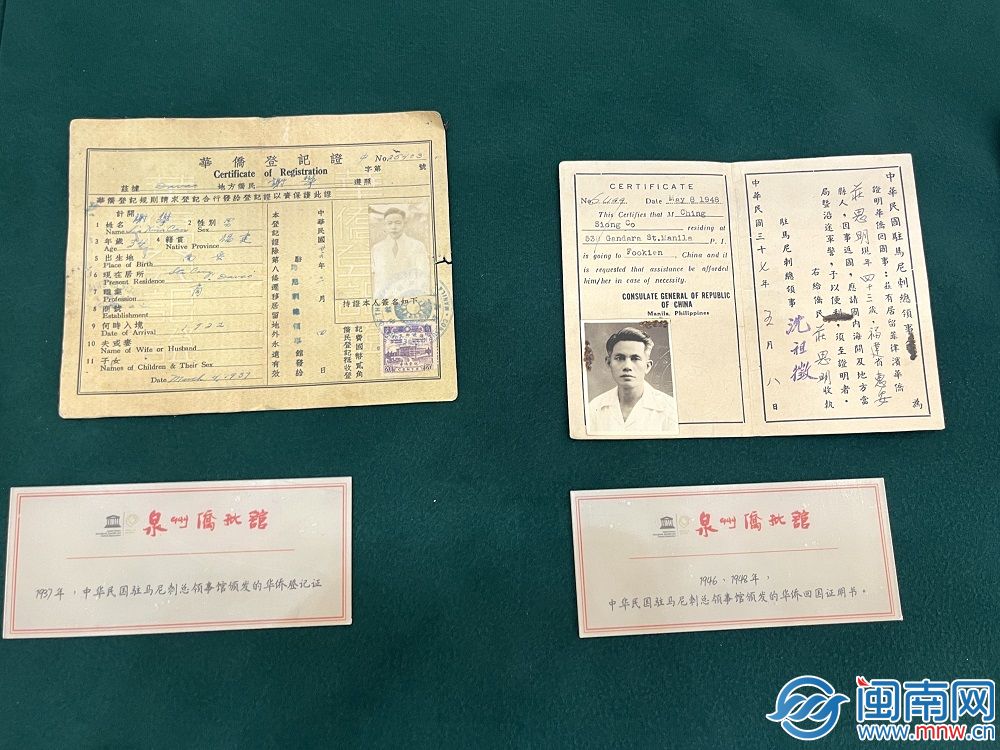 華僑登記證
Certificate of Registration
字第 No.
茲據 Davao 地方僑民 遵照
華僑登記規則請求登記合行發給登記證以資保護此證
計開
1 姓名 Name 2 性別 男 Sex
3 年歲 Age 4 籍貫 福建 Native Province
5 出生地 Place of Birth
6 現在居所 Present Residence Sta Cruz, Davao
7 職業 商 Profession
8 商號 Establishment
9 何時入境 1922 Date of Arrival
10 夫或妻 Name of Wife or Husband
11 子女 Names of Children & Their Sex
Date March 4, 1937
本登記證除第八條遷移居留地外永遠有效
中華民國
駐馬尼剌總領事館發給
持證本人簽名如下
僑民登記證收登
記費國幣貳角
CERTIFICATE
No. Date May 8, 1948
This Certifies that M Ching
Siong Co residing at
539 Gandara St. Manila P. I.
is going to Fookien, China and it
is requested that assistance be afforded
him/her in case of necessity.
CONSULATE GENERAL OF REPUBLIC
OF CHINA
Manila, Philippines
中華民國駐馬尼剌總領事 為
證明華僑回國事：茲有居留菲律濱華僑
莊思明現年四十三歲，福建省惠安
縣人，因事返國，應請國內海關及地方當
局暨沿途軍警，予以便利，須至證明者。
右給僑民莊思明收執
駐馬尼剌總領事 沈祖徵
中華民國三十七年五月八日
泉州僑批館
1937年，中华民国驻马尼剌总领事馆颁发的华侨登记证
泉州僑批館
1946、1948年，
中华民国驻马尼剌总领事馆颁发的华侨回国证明书。
闽南网
www.mnw.cn